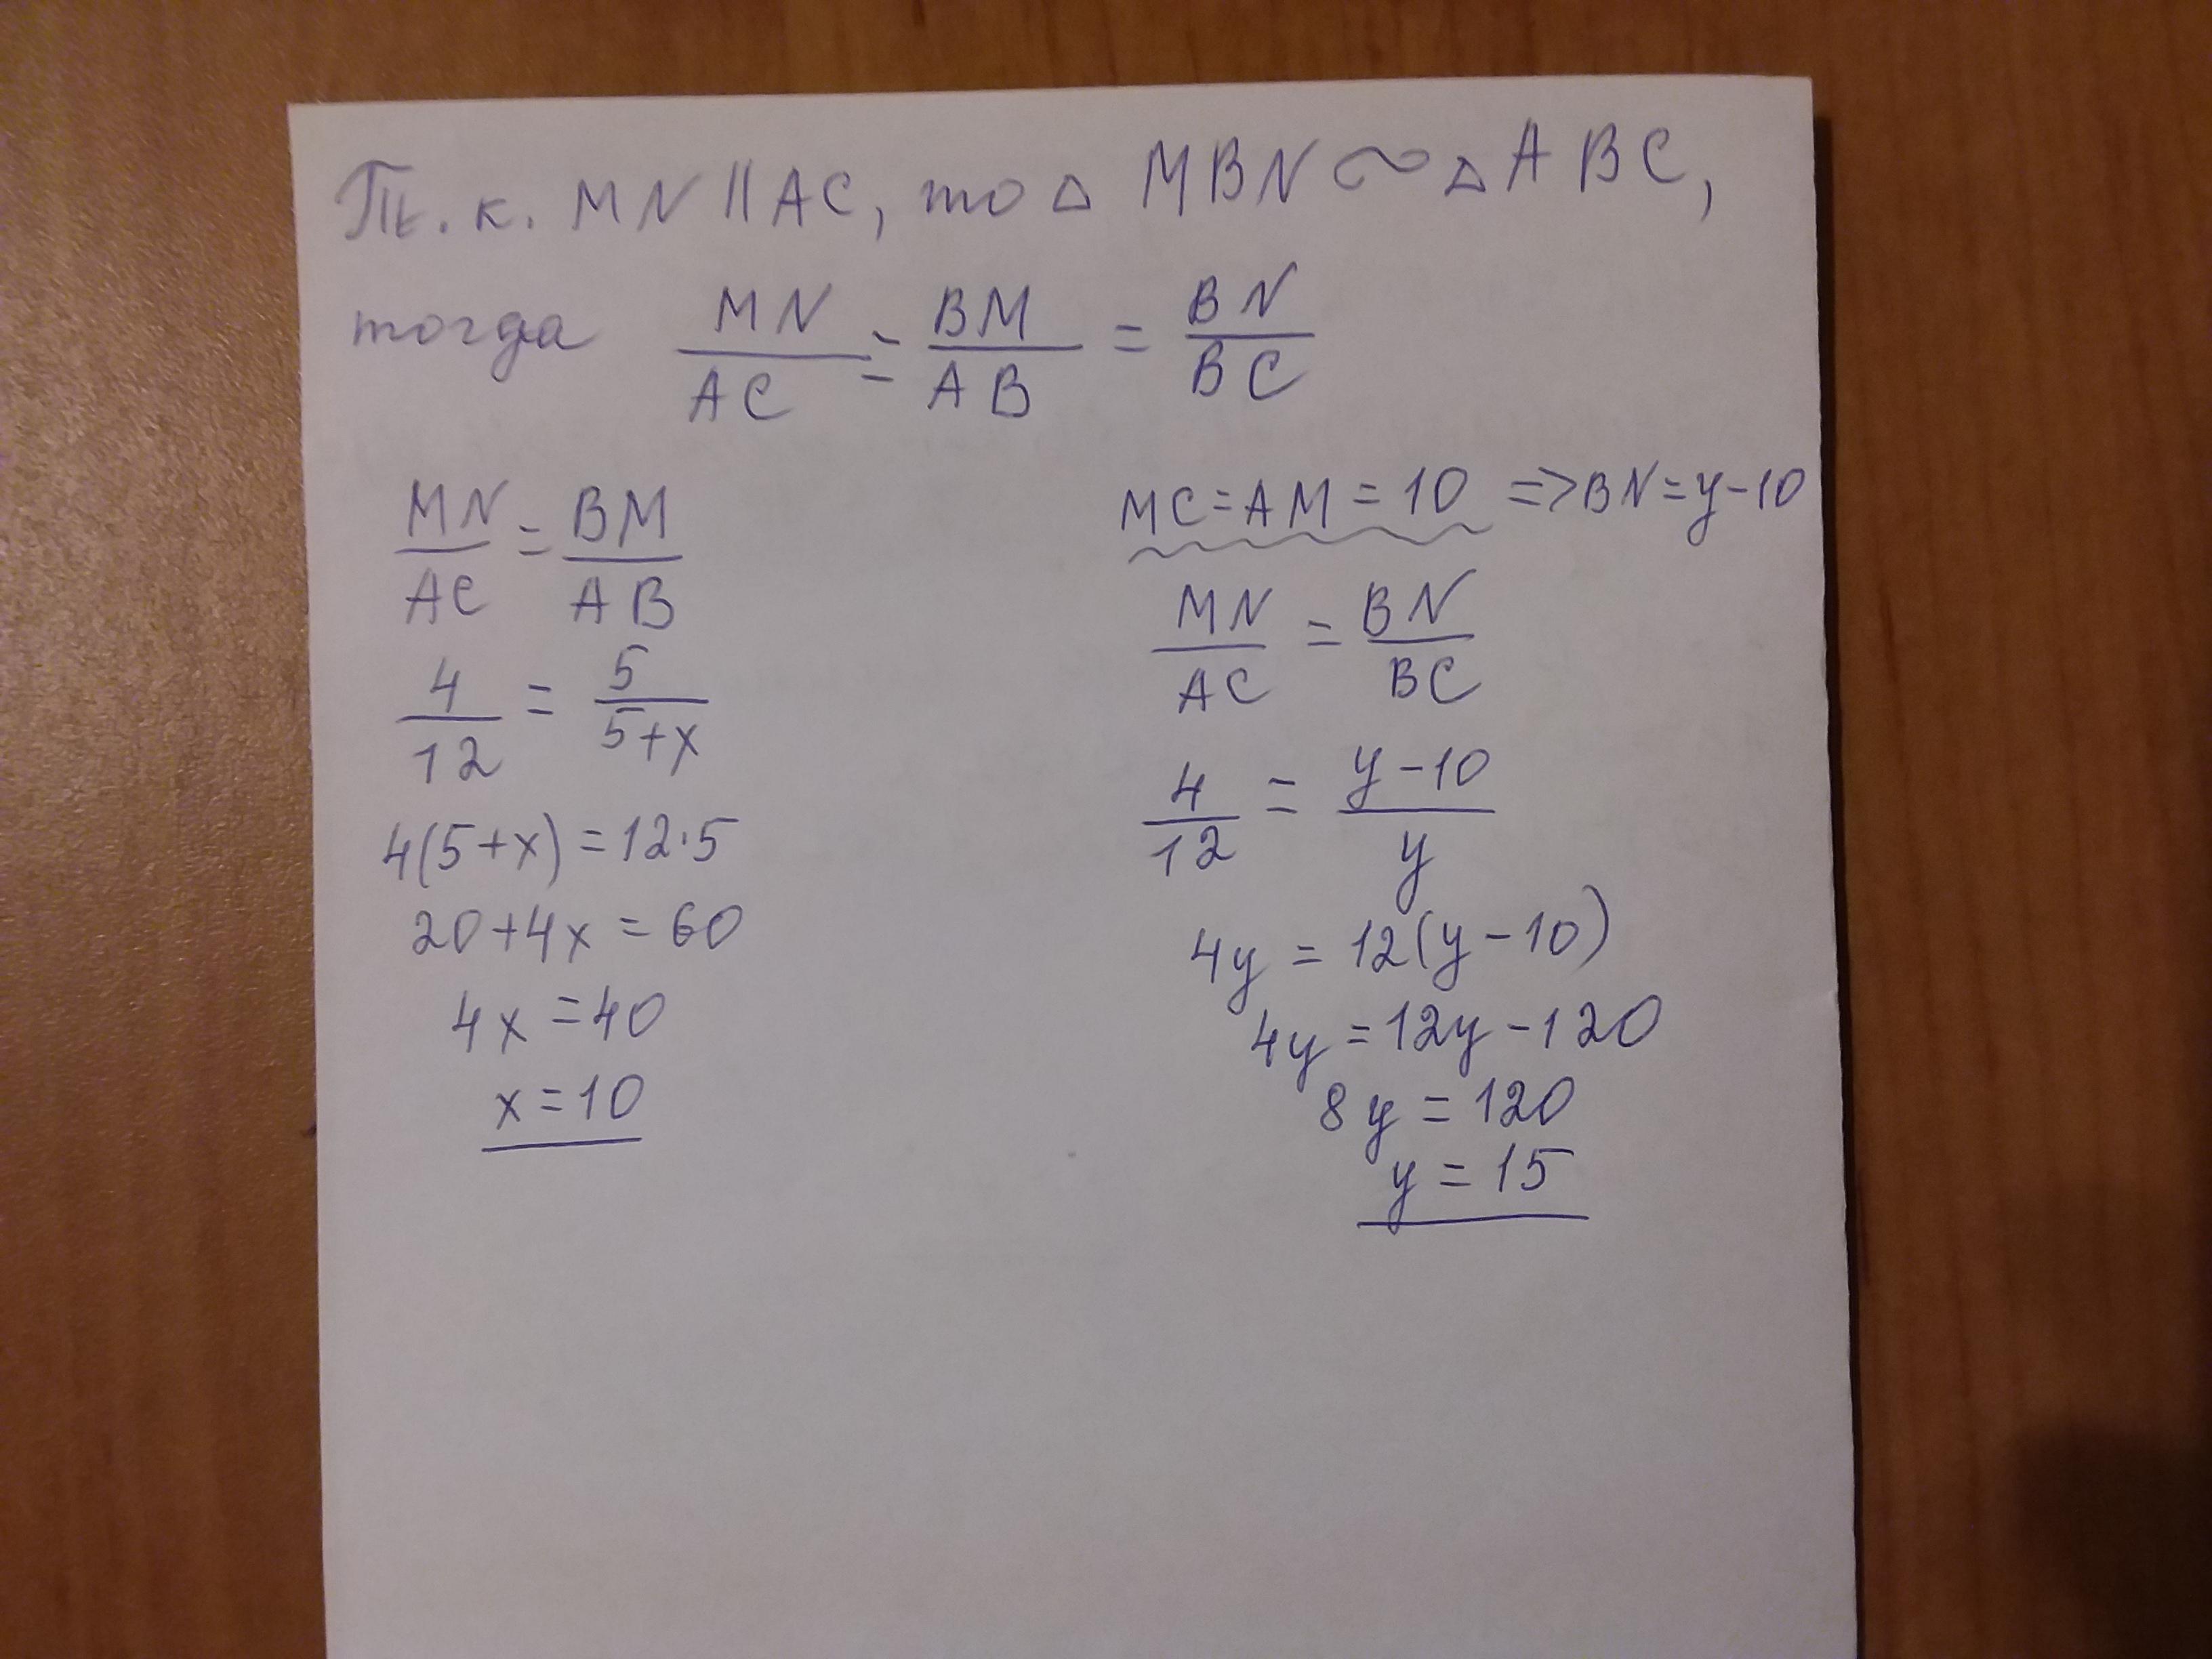 Т.к. MN || AC, то △ MBN ∼ △ ABC,
тогда MN/AC = BM/AB = BN/BC
MN/AC = BM/AB
4/12 = 5/(5+x)
4(5+x) = 12·5
20+4x = 60
4x = 40
x = 10
MC = AM = 10 => BN = y-10
MN/AC = BN/BC
4/12 = (y-10)/y
4y = 12(y-10)
4y = 12y-120
8y = 120
y = 15